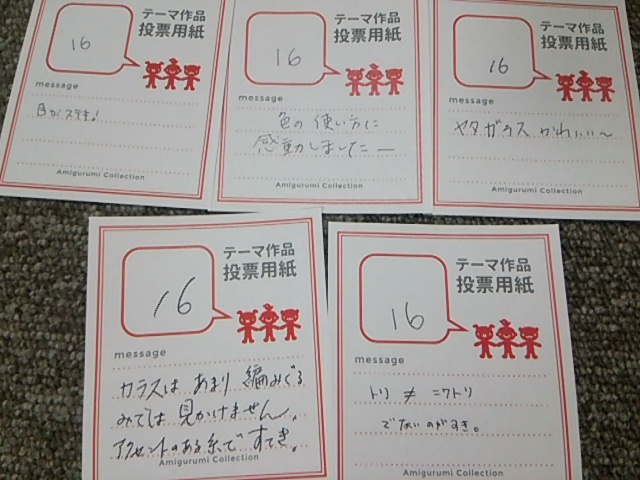 テーマ作品
投票用紙
16
message
目がステキ!
Amigurumi Collection
テーマ作品
投票用紙
16
message
色の使い方に
感動しましたー
Amigurumi Collection
テーマ作品
投票用紙
16
message
ヤタガラスかわいい〜
Amigurumi Collection
テーマ作品
投票用紙
16
message
カラスはあまり編みぐる
みでは見かけません。
アクセントのある糸ですてき。
Amigurumi Collection
テーマ作品
投票用紙
16
message
トリ ≠ ニワトリ
でないのがすき。
Amigurumi Collection